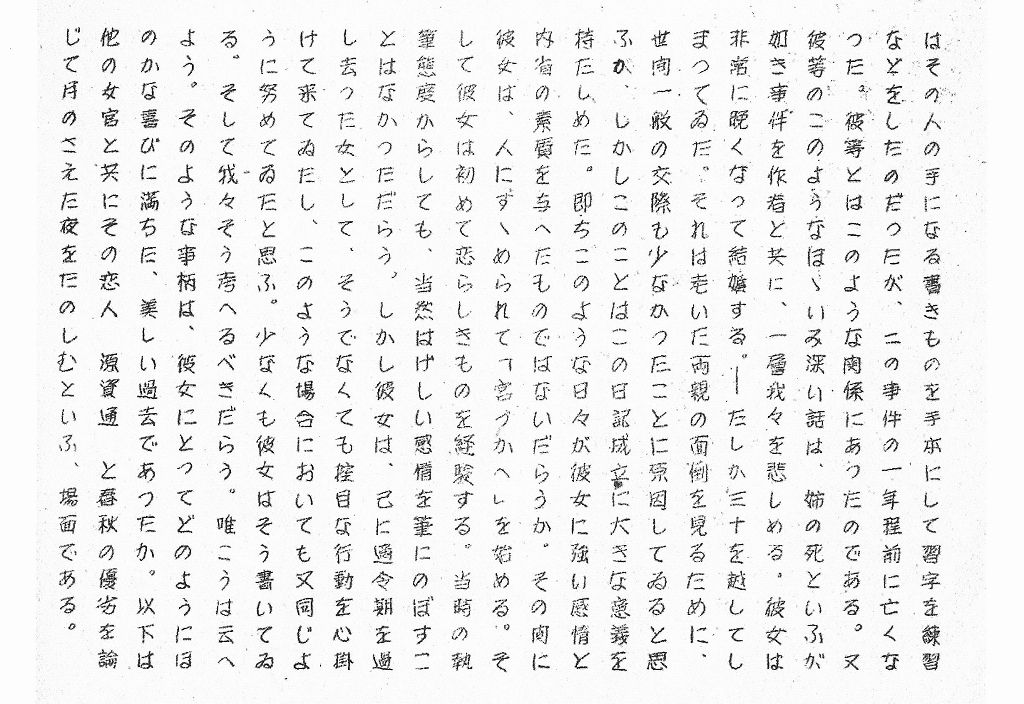 はその人の手になる書きものを手本にして習字を練習
などをしたのだったが、この事件の一年程前に亡くな
つた。彼等とはこのような関係にあつたのである。又
彼等のこのようなほゝいみ深い話は、姉の死といふが
如き事件を作者と共に、一層我々を悲しめる。彼女は
非常に晩くなって結婚する。―たしか三十を越してし
まつてゐた。それは老いた両親の面倒を見るために、
世間一般の交際も少なかつたことに原因してゐると思
ふが、しかしこのことはこの日記成立に大きな意義を
持たしめた。即ちこのような日々が彼女に強い感情と
内省の素質を与へたものではないだらうか。その間に
彼女は、人にすゝめられて「宮づかへ」を始める。そ
して彼女は初めて恋らしきものを経験する。当時の執
筆態度からしても、当然はげしい感情を筆にのぼすこ
とはなかつただらう。しかし彼女は、已に適令期を過
し去つた女として、そうでなくても控目な行動を心掛
けて来てゐたし、このような場合においても又同じよ
うに努めてゐたと思ふ。少なくも彼女はそう書いてゐ
る。そして我々そう考へるべきだらう。唯こうは云へ
よう。そのような事柄は、彼女にとつてどのようにほ
のかな喜びに満ちた、美しい過去であつたか。以下は
他の女官と共にその恋人　源資通　と春秋の優劣を論
じて月のさえた夜をたのしむといふ、場面である。